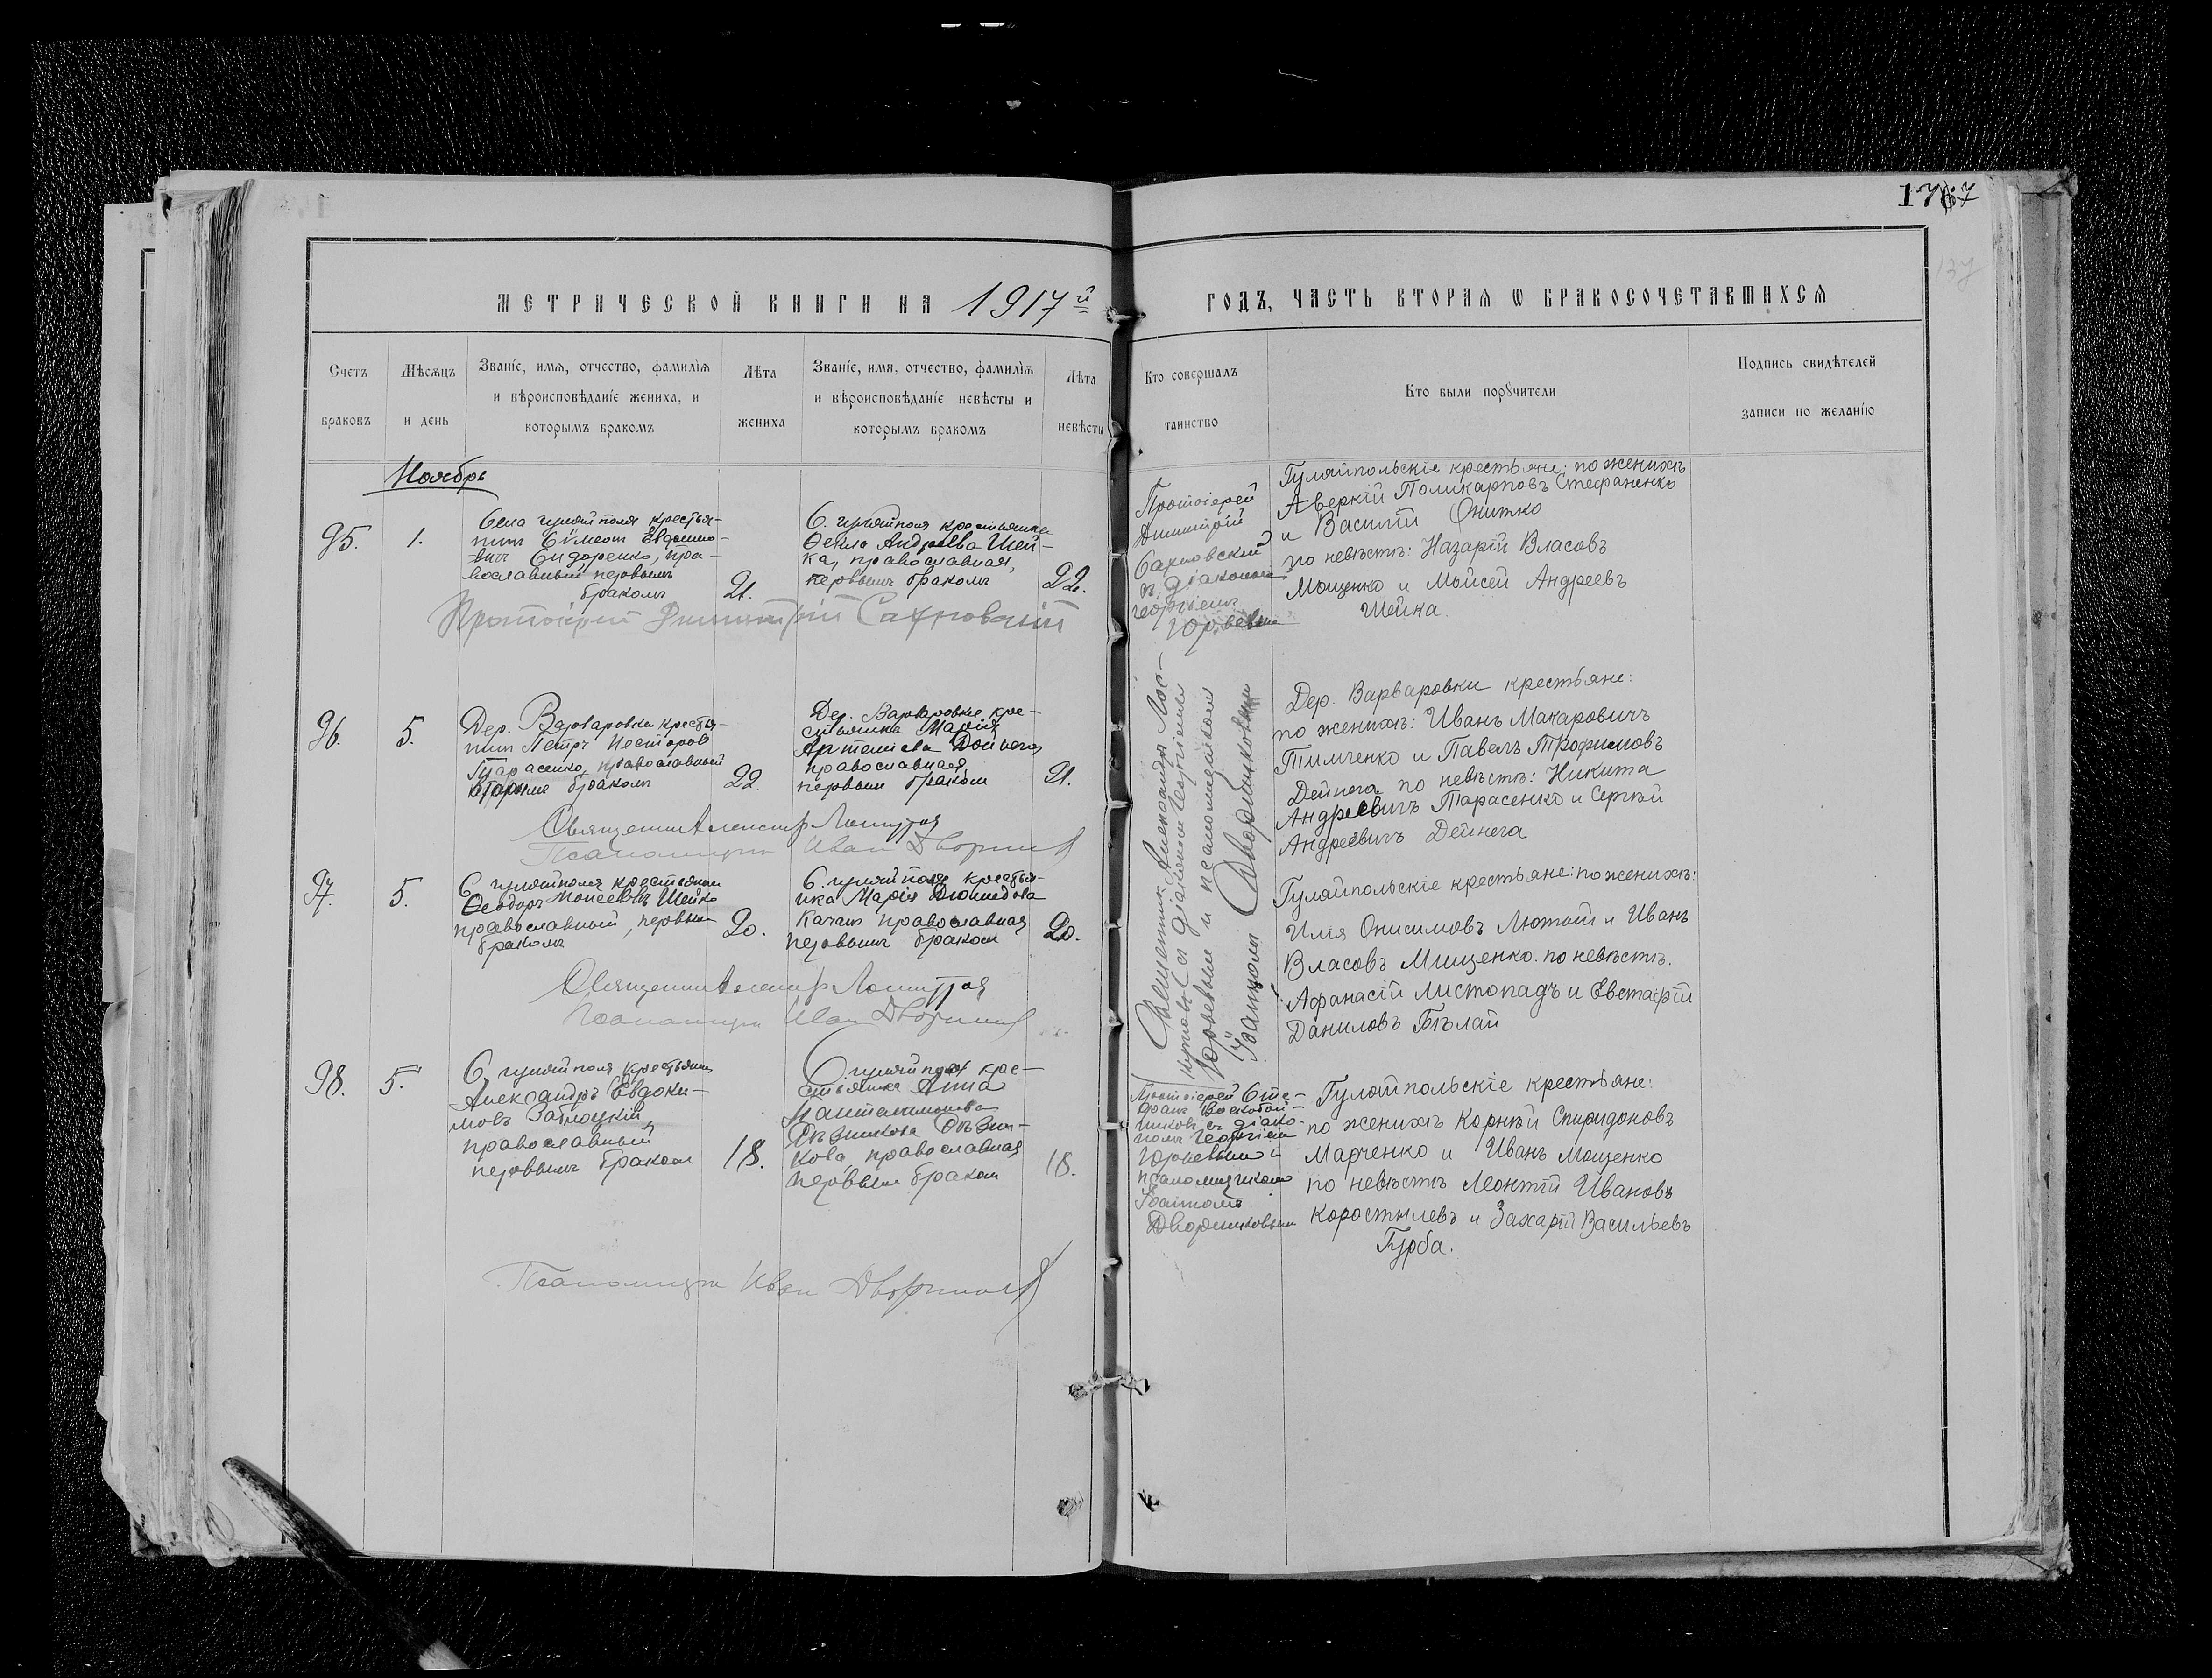 1767
137
МЕТРИЧЕСКОЙ КНИГИ НА 1917й ГОДЪ, ЧАСТЬ ВТОРАЯ Ѡ БРАКОСОЧЕТАВШИХСЯ
Счетъ
браковъ
Мѣсяцъ
и день
Званіе, имя, отчество, фамилія
и вѣроисповѣданіе жениха, и
которымъ бракомъ
Лѣта
жениха
Званіе, имя, отчество, фамилія
и вѣроисповѣданіе невѣсты и
которымъ бракомъ
Лѣта
невѣсты
Кто совершалъ
таинство
Кто были порꙋчители
Подпись свидѣтелей
записи по желанію
Ноябрь
95.
1.
Села Гуляйполя крестья-
нинъ Симеонъ
Сидоренко, пра-
вославный первымъ
бракомъ
21.
С. Гуляйполя крестьянка
Ѳекла Андреева Шей-
ка, православная,
первымъ бракомъ
22.
Протоіерей
Димитрій
Сахновскій
съ діакономъ
Георгіемъ
Юрьевымъ
Гуляйпольскіе крестьяне: по женихѣ
Аверкій Поликарповъ Стефаненко
и Василій Онитко
по невѣстѣ: Назарій Власовъ
Мощенко и Мойсей Андреевъ
Шейка.
Протоіерей Димитрій Сахновскій
96.
5.
Дер. Варваровки крестья-
нинъ Петръ Несторов
Тарасенко, православный
вторымъ бракомъ
22.
Дер. Варваровки, кре-
стьянка Марія
Артеміева Дейнега
православная
первымъ бракомъ
21.
Священникъ Александръ Лос-
кутовъ съ діакономъ Георгіемъ
Юрьевымъ и псаломщикомъ
Іоанномъ Дворниковымъ
Дер. Варваровки крестьяне:
по женихѣ: Иванъ Макаровичъ
Тимченко и Павелъ Трофимовъ
Дейнега по невѣстѣ: Никита
Андреевичъ Тарасенко и Сергѣй
Андреевичъ Дейнега
Священникъ Александр
Псаломщикъ Иван Дворников
97.
5.
С. Гуляйполя крестьянин
Ѳеодоръ Моисеевъ Шейко
православный, первым
бракомъ
20.
С. Гуляйполя крестья-
нка Марія
Качан православная
первымъ браком
20.
Гуляйпольскіе крестьяне: по женихѣ:
Илія Онисимовъ Лютый и Иванъ
Власовъ Мищенко. по невѣстѣ.
Афанасій Листопадъ и Евстафій
Даниловъ Бѣлай
Священник Александр
Псаломщик Иван Дворников
98.
5.
С. Гуляйполя крестьянин
Александръ Евдоки-
мовъ Заблоцкій
православный
первымъ браком
18.
С. Гуляйполя кре-
стьянка Анна
Пантелимонова
православная
первым браком
18.
Протоіерей Сте-
фанъ Воскобой-
никовъ съ діако-
номъ Георгіем
Юрьевымъ и
псаломщикомъ
Іоанномъ
Дворниковым
Гуляйпольскіе крестьяне:
по женихѣ Корнѣй Спиридоновъ
Марченко и Иванъ Мощенко
по невѣстѣ Леонтій Ивановъ
Коростылевъ и Захарій Васильевъ
Гурба.
Псаломщик Иван Дворников